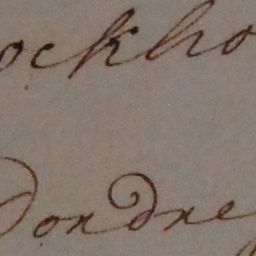 ockho
Dondre